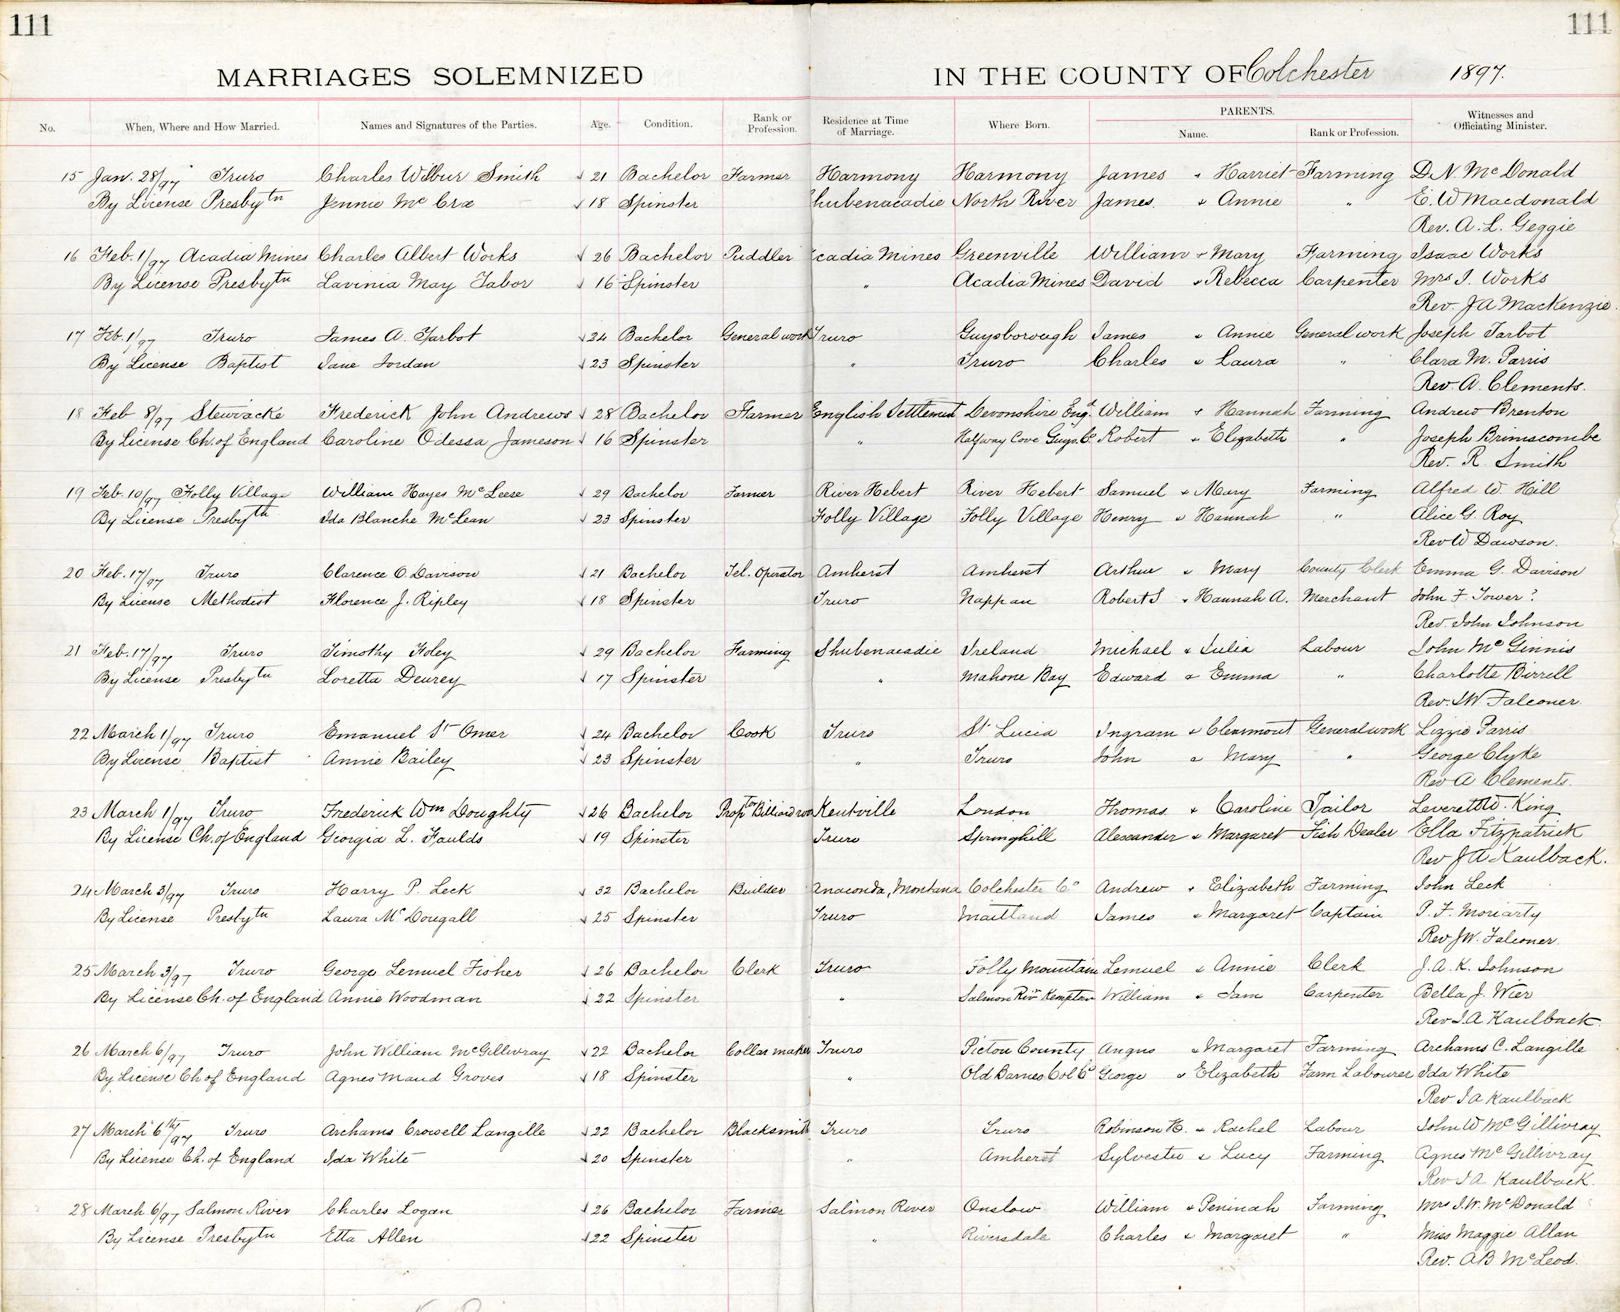 111 111
MARRIAGES SOLEMNIZED IN THE COUNTY OF Colchester 1897.
No. When, Where and How Married. Names and Signatures of the Parties. Age. Condition. Rank or Profession. Residence at Time of Marriage. Where Born. PARENTS. Name. Rank or Profession. Witnesses and Officiating Minister.
15 Jan. 28/97 Truro Charles Wilbur Smith 21 Bachelor Farmer Harmony Harmony James & Harriet Farming D. N. McDonald
By License Presbytn Jennie McCrae 18 Spinster Shubenacadie North River James & Annie " E. W Macdonald
Rev. A. L. Geggie
16 Feb. 1/97 Acadia Mines Charles Albert Works 26 Bachelor Puddler Acadia Mines Greenville William & Mary Farming Isaac Works
By License Presbytn Lavinia May Tabor 16 Spinster " Acadia Mines David & Rebecca Carpenter Mrs I. Works
Rev. J A MacKenzie.
17 Feb. 1/97 Truro James A. Tarbot 24 Bachelor General work Truro Guysborough James & Annie General work Joseph Tarbot
By License Baptist Jane Jordan 23 Spinster " Truro Charles & Laura " Clara M. Parris
Rev. A. Clements.
18 Feb 8/97 Stewiacke Frederick John Andrews 28 Bachelor Farmer English Settlement Devonshire Engd. William & Hannah Farming Andrew Brenton
By License Ch. of England Caroline Odessa Jameson 16 Spinster " Halfway Cove Guys. Co Robert & Elizabeth " Joseph Brimscombe
Rev. R. Smith
19 Feb. 10/97 Folly Village William Hayes McLeese 29 Bachelor Farmer River Hebert River Hebert Samuel & Mary Farming Alfred W. Hill
By License Presbyth Ida Blanche McLean 23 Spinster Folly Village Folly Village Henry & Hannah " Alice G. Roy
Rev W Dawson.
20 Feb. 17/97 Truro Clarence O. Davison 21 Bachelor Tel. Operator Amherst Amherst Arthur & Mary County Clerk Emma G. Davison
By License Methodist Florence J. Ripley 18 Spinster Truro Nappan Robert S & Hannah A. Merchant John F. Tower ?
Rev. John Johnson
21 Feb. 17/97 Truro Timothy Foley 29 Bachelor Farming Shubenacadie Ireland Michael & Julia Labour John McGinnis
By License Presbytn Loretta Deurey 17 Spinster " Mahone Bay Edward & Emma " Charlotte Birrell
Rev. J W Falconer.
22 March 1/97 Truro Emanuel St Omer 24 Bachelor Cook Truro St Lucia Ingram & Clearmont General work Lizzie Parris
By License Baptist Annie Bailey 23 Spinster " Truro John & Mary " George Clyke
Rev A Clements.
23 March 1/97 Truro Frederick Wm Doughty 26 Bachelor Proptor Billiard room Kentville London Thomas & Caroline Tailor Leverett W. King
By License Ch. of England Georgia L. Faulds 19 Spinster Truro Springhill Alexander & Margaret Fish Dealer Ella Fitzpatrick
Rev J A Kaulback.
24 March 3/97 Truro Harry P. Leck 32 Bachelor Builder Anaconda, Montana Colchester Co Andrew & Elizabeth Farming John Leck
By License Presbytn Laura McDougall 25 Spinster Truro Maitland James & Margaret Captain P. F. Moriarty
Rev J W. Falconer.
25 March 3/97 Truro George Lemuel Fisher 26 Bachelor Clerk Truro Folly Mountain Lemuel & Annie Clerk J. A. K. Johnson
By License Ch. of England Annie Woodman 22 Spinster " Salmon Rivr Kempton William & Jane Carpenter Bella J. Wier
Rev J. A Kaulback.
26 March 6/97 Truro John William McGillivray 22 Bachelor Collar maker Truro Pictou County Angus & Margaret Farming Archams C. Langille
By License Ch of England Agnes Maud Groves 18 Spinster " Old Barnes Col Co George & Elizabeth Farm Labourer Ida White
Rev J A Kaulback
27 March 6th/97 Truro Archams Crowell Langille 22 Bachelor Blacksmith Truro Truro Robinson H. & Rachel Labour John W McGillivray
By License Ch. of England Ida White 20 Spinster " Amherst Sylvester & Lucy Farming Agnes McGillivray
Rev J A Kaulback.
28 March 6/97 Salmon River Charles Logan 26 Bachelor Farmer Salmon River Onslow William & Peninah Farming Mrs J. W. McDonald
By License Presbytn Etta Allen 22 Spinster " Riversdale Charles & Margaret " Miss Maggie Allan
Rev. A B McLeod.